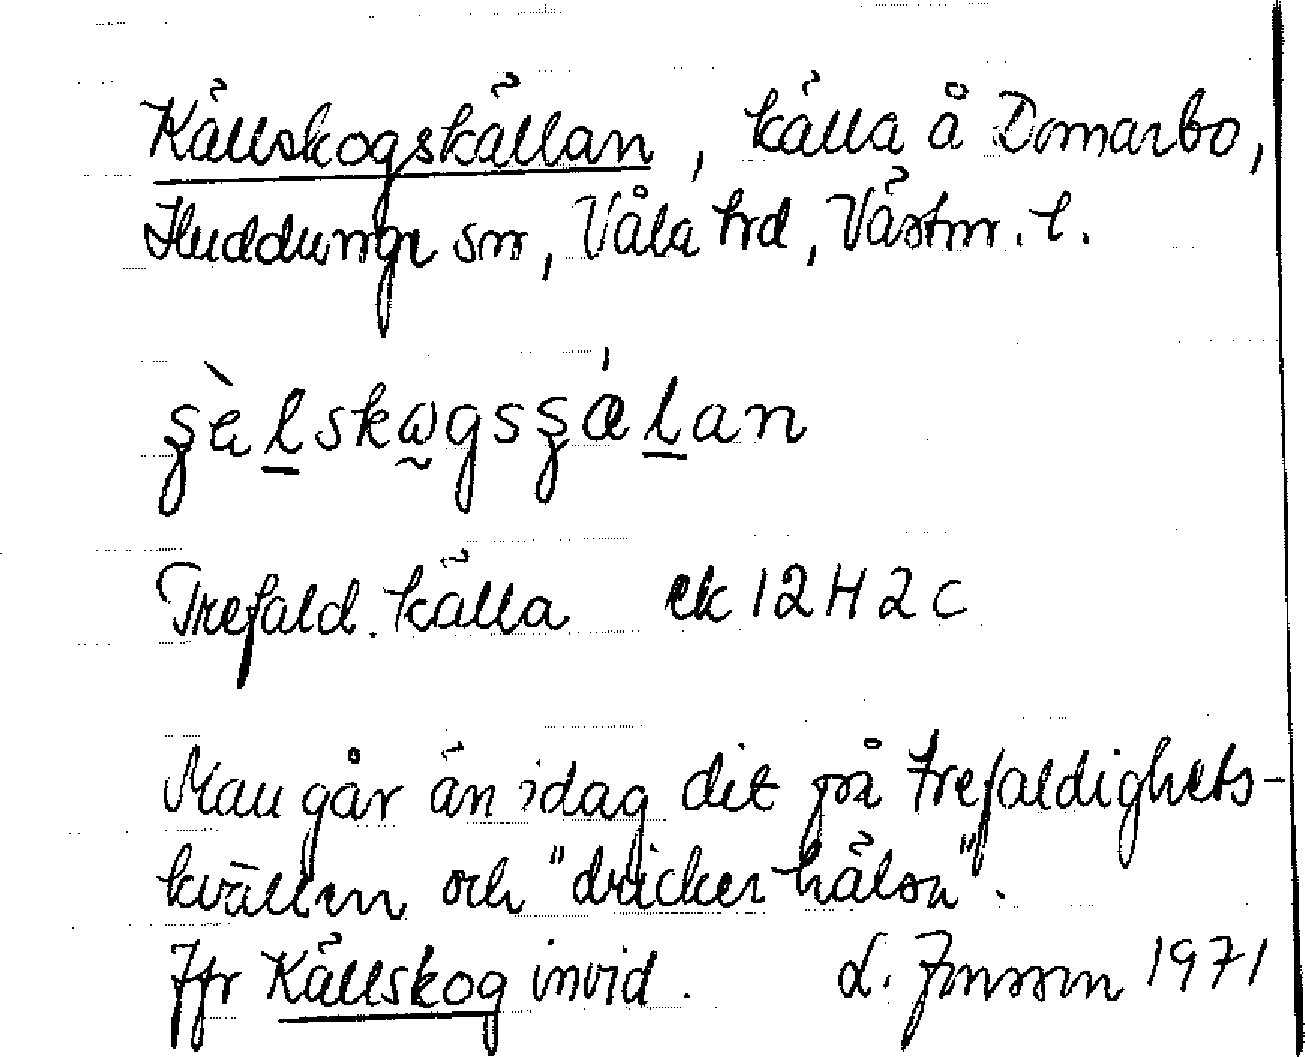 Källskogskällan, källa å Domarbo,
Huddunge sn, Våla hrd, Västm. l.
Trefald. källa ek 12H2c
Man går än idag dit på trefaldighets-
kvällen och "dricker hälsa".
Jfr Källskog invid. L. Jonsson 1971